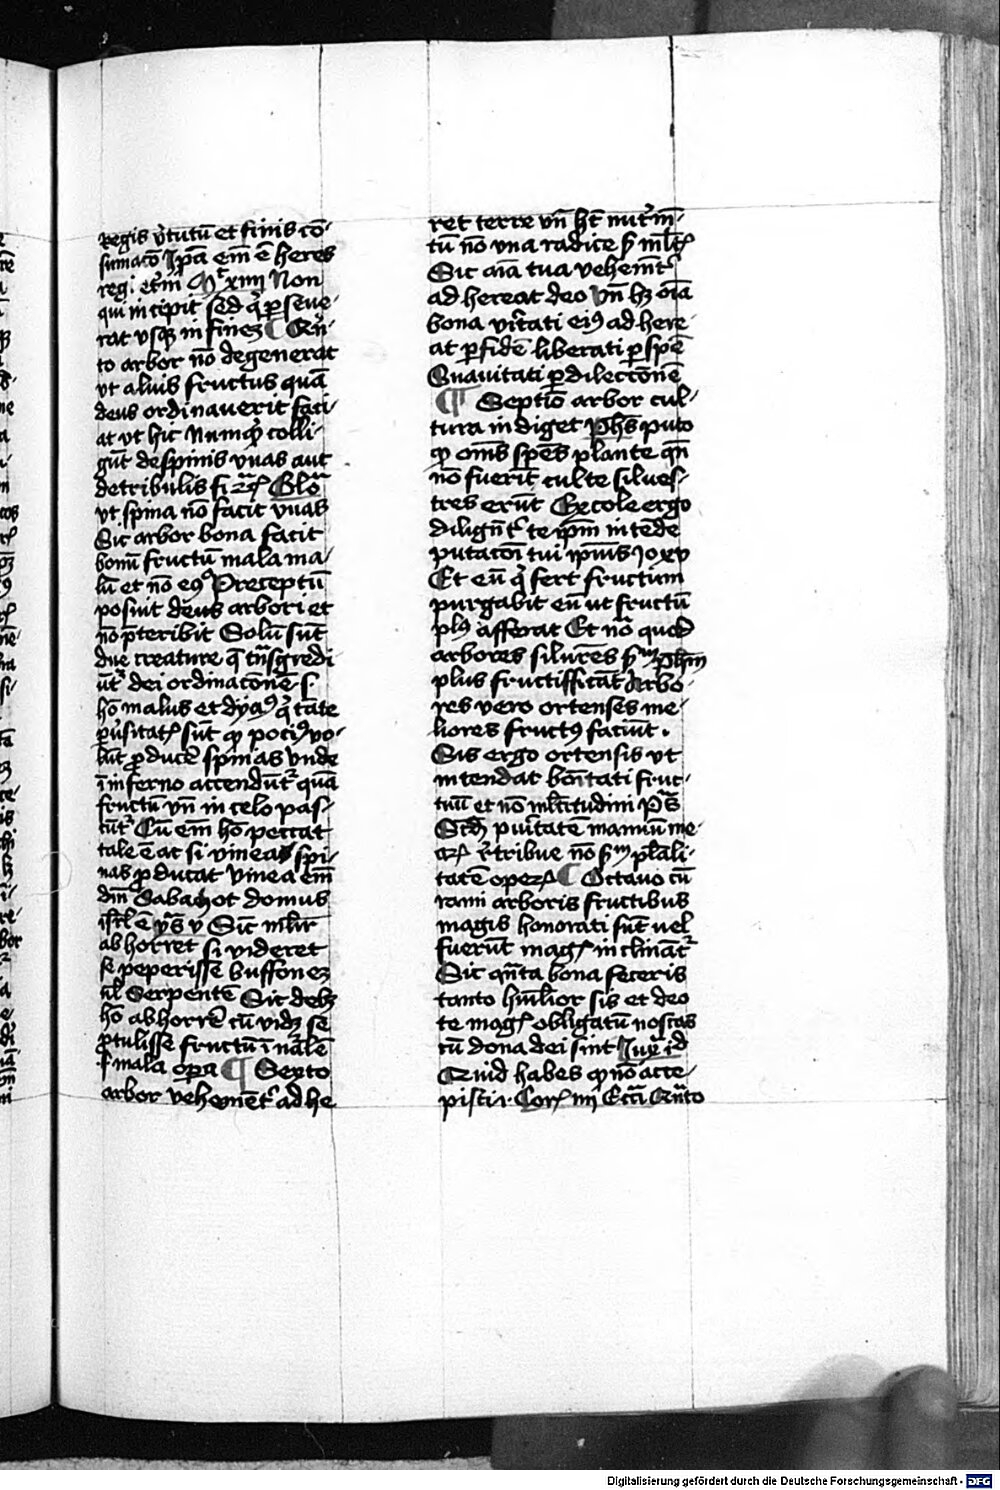 regis v̓tutū et finis cō-
sumacō Ipā em̄ ē heres
regi et̓ni Mͭ xiiii Non
qui incipit sed q̓ perseue-
rat vsqꝫ in finez ¶ Qn̄-
to arbor nō degenerat
vt aluis fructus quā
deus ordinauerit faci-
at vt hic Numqͥd colli-
gūt despinis vuas aut
detribulis fi Glo
vt spina nō facit vuas
Sic arbor bona facit
bonū fructū mala ma-
lū et nō eꝯ Preceptū
posuit deus arbori et
nō p̄teribit Solū sūt
due creature q̄ tn̄sgredi-
ūt̓ dei ordinacōnē .s.
hō malus et dyaꝯ q̓ tāte
puͬsitatꝭ sūt qꝙ pociꝯ vo-
lūt ꝓducē spinas vnde
ī inferno accendūt̓ quā
fructū vn̄ in celo pas-
cūt̓ Cū em̄ hō peccat
tale ē ac si vinea spi-
nas ꝓducat vinea em̄
dn̄i Sabaoth domus
isrl̄ ē ys̄ v Sic ml̄ir
abhorret si videret
se peperisse buffonez
ul̓ Serpentē Sic debꝫ
hō abhorrē cū vidꝫ se
ꝓtulisse fructū īnalē
.s. mala oꝑa ¶ Sexto
arbor vehement̓ adhe
ret terre vn̄ hꝫ nut̓m̄-
tū nō vna radice sꝫ ml̄tꝭ
Sic aīa tua vehemt̓
adhereat deo vn̄ hꝫ oīa
bona v̓itati eiꝯ adhere-
at ꝑ fidē liberati ꝑ spē
Suauitati ꝑ dilecconē
¶ Septīo arbor cul-
tura indiget Ph̄s puto
qꝙ om̄s spēs plante qn̄
nō fuerīt culte silues-
tres erūt Excole ergo
dilign̄t̓ te ip̄m in tede
putacōī tui ip̄ius Io xv
Et eū q̓ fert fructum
purgabit eū ut fructū
plꝯ afferat Et nō quod
arbores siluͬes sͫ Ph̄m
plus fructifficāt Arbo-
res vero ortenses me-
liores fructꝯ faciūt .
Sis ergo ortensis vt
intendat bōitati fruc-
tuū et nō ml̄titudini Ps̄
Scdꝫ puͥtatē manuū me-
aꝝ r̓tribue nō sͫ pl̄ali-
tatē operꝫ ¶ Octauo cū
rami arboris fructibus
magis honorati sūt uel
fuerūt magꝭ inclinātͬ
Sic qn̄ta bona feceris
tanto hūilior sis et deo
te magꝭ obligatū noscas
cū dona dei sint Iuxͣ id
Quid habes qꝙ nō acce-
pisti 1. Corꝭ iiii Ecc̄i Qn̄to